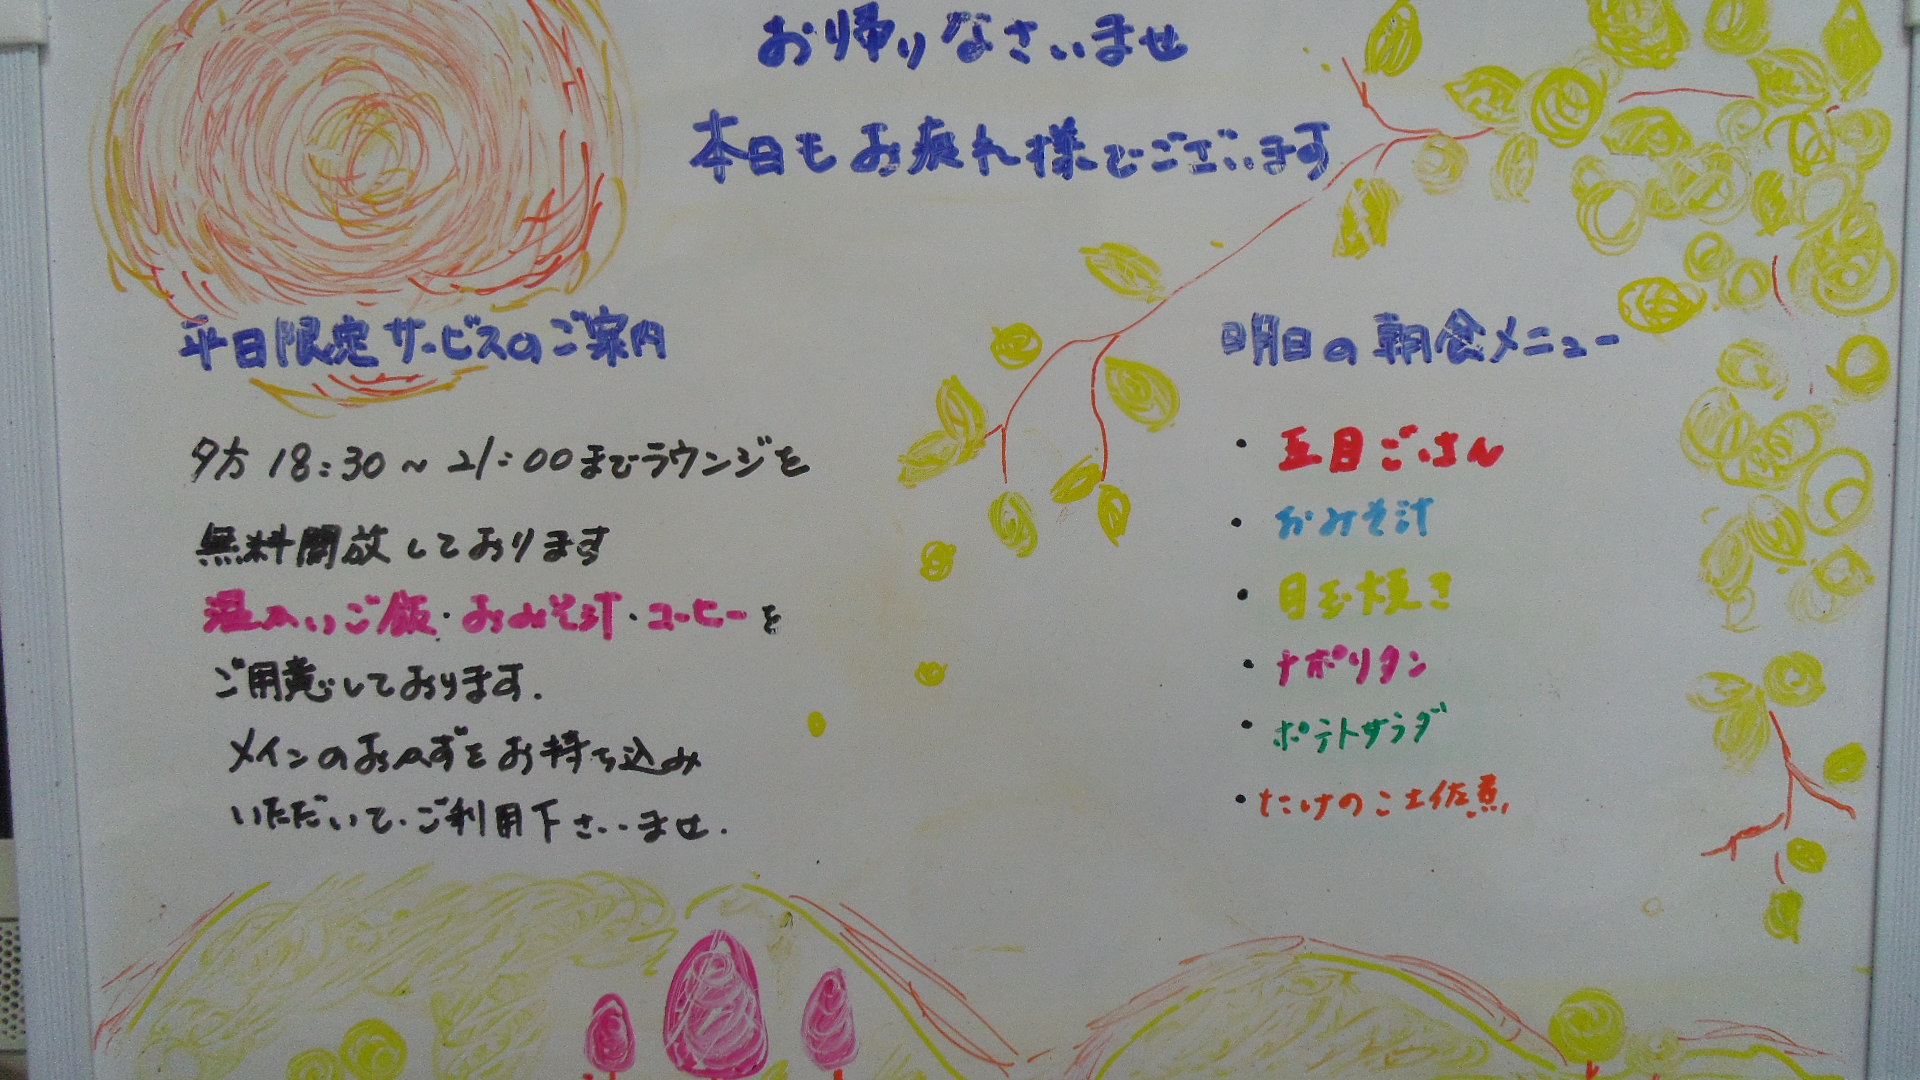 お帰りなさいませ
本日もお疲れ様でございます
平日限定サービスのご案内
夕方 18:30～21:00までラウンジを
無料開放しております
温かいご飯・おみそ汁・コーヒーを
ご用意しております.
メインのおかずをお持ち込み
いただいて、ご利用下さいませ.
明日の朝食メニュー
・五目ごはん
・おみそ汁
・目玉焼き
・ナポリタン
・ポテトサラダ
・たけのこ土佐煮